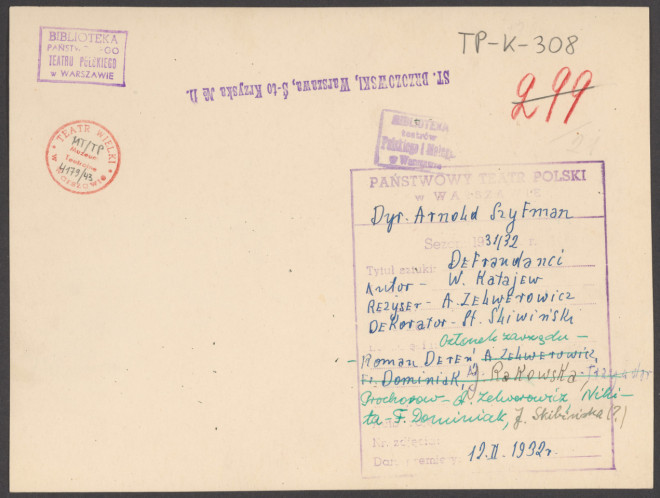 BIBLIOTEKA
PAŃSTWOWEGO
TEATRU POLSKIEGO
w WARSZAWIE
TP-K-308
299
ST. BRZOZOWSKI, Warszawa, Ś-to Krzyska № 11.
TEATR WIELKI
W WARSZAWIE
MT/TP
Muzeum
Teatralne
4179/43
BIBLIOTEKA
teatrów
Polskiego i
w Warszawie
PAŃSTWOWY TEATR POLSKI
w WARSZAWIE
Dyr. Arnold Szyfman
Sezon 1931/32 r.
Tytuł sztuki: Defraudanci
Autor - W. Katajew
Reżyser - A. Zelwerowicz
Dekorator - St. Śliwiński
Członek zarządu -
- Roman Dereń A. Zelwerowicz,
Fr. Dominiak, J. Rakowska,
Prochorow - A. Zelwerowicz, Niki-
ta - F. Dominiak, J. Skibińska (?)
Nr. zdjęcia:
Data premiery: 12.II.1932r.